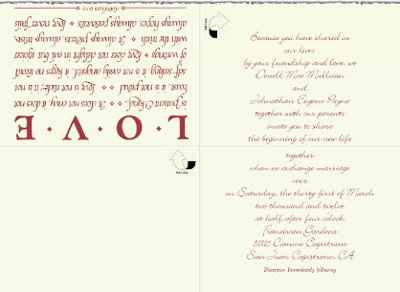 L·O·V·E
is patient, Love is kind. ❖ It does not envy, it does not
boast, it is not proud. ❖ Love is not rude, it is not
self-seeking, it is not easily angered, it keeps no record
of wrongs. ❖ Love does not delight in evil but rejoices
with the truth. ❖ ❖ It always protects, always trusts,
always hopes, always perseveres. ❖ Love never fails.
Because you have shared in
our lives
by your friendship and love, we
Mae
and
Johnathan Eugene
together with our parents
invite you to share
the beginning of our new life
together
when we exchange marriage
vows
on Saturday, the thirty-first of March
two thousand and twelve
at half after four o'clock
Gardens
Camino Capistrano
San Juan Capistrano, CA